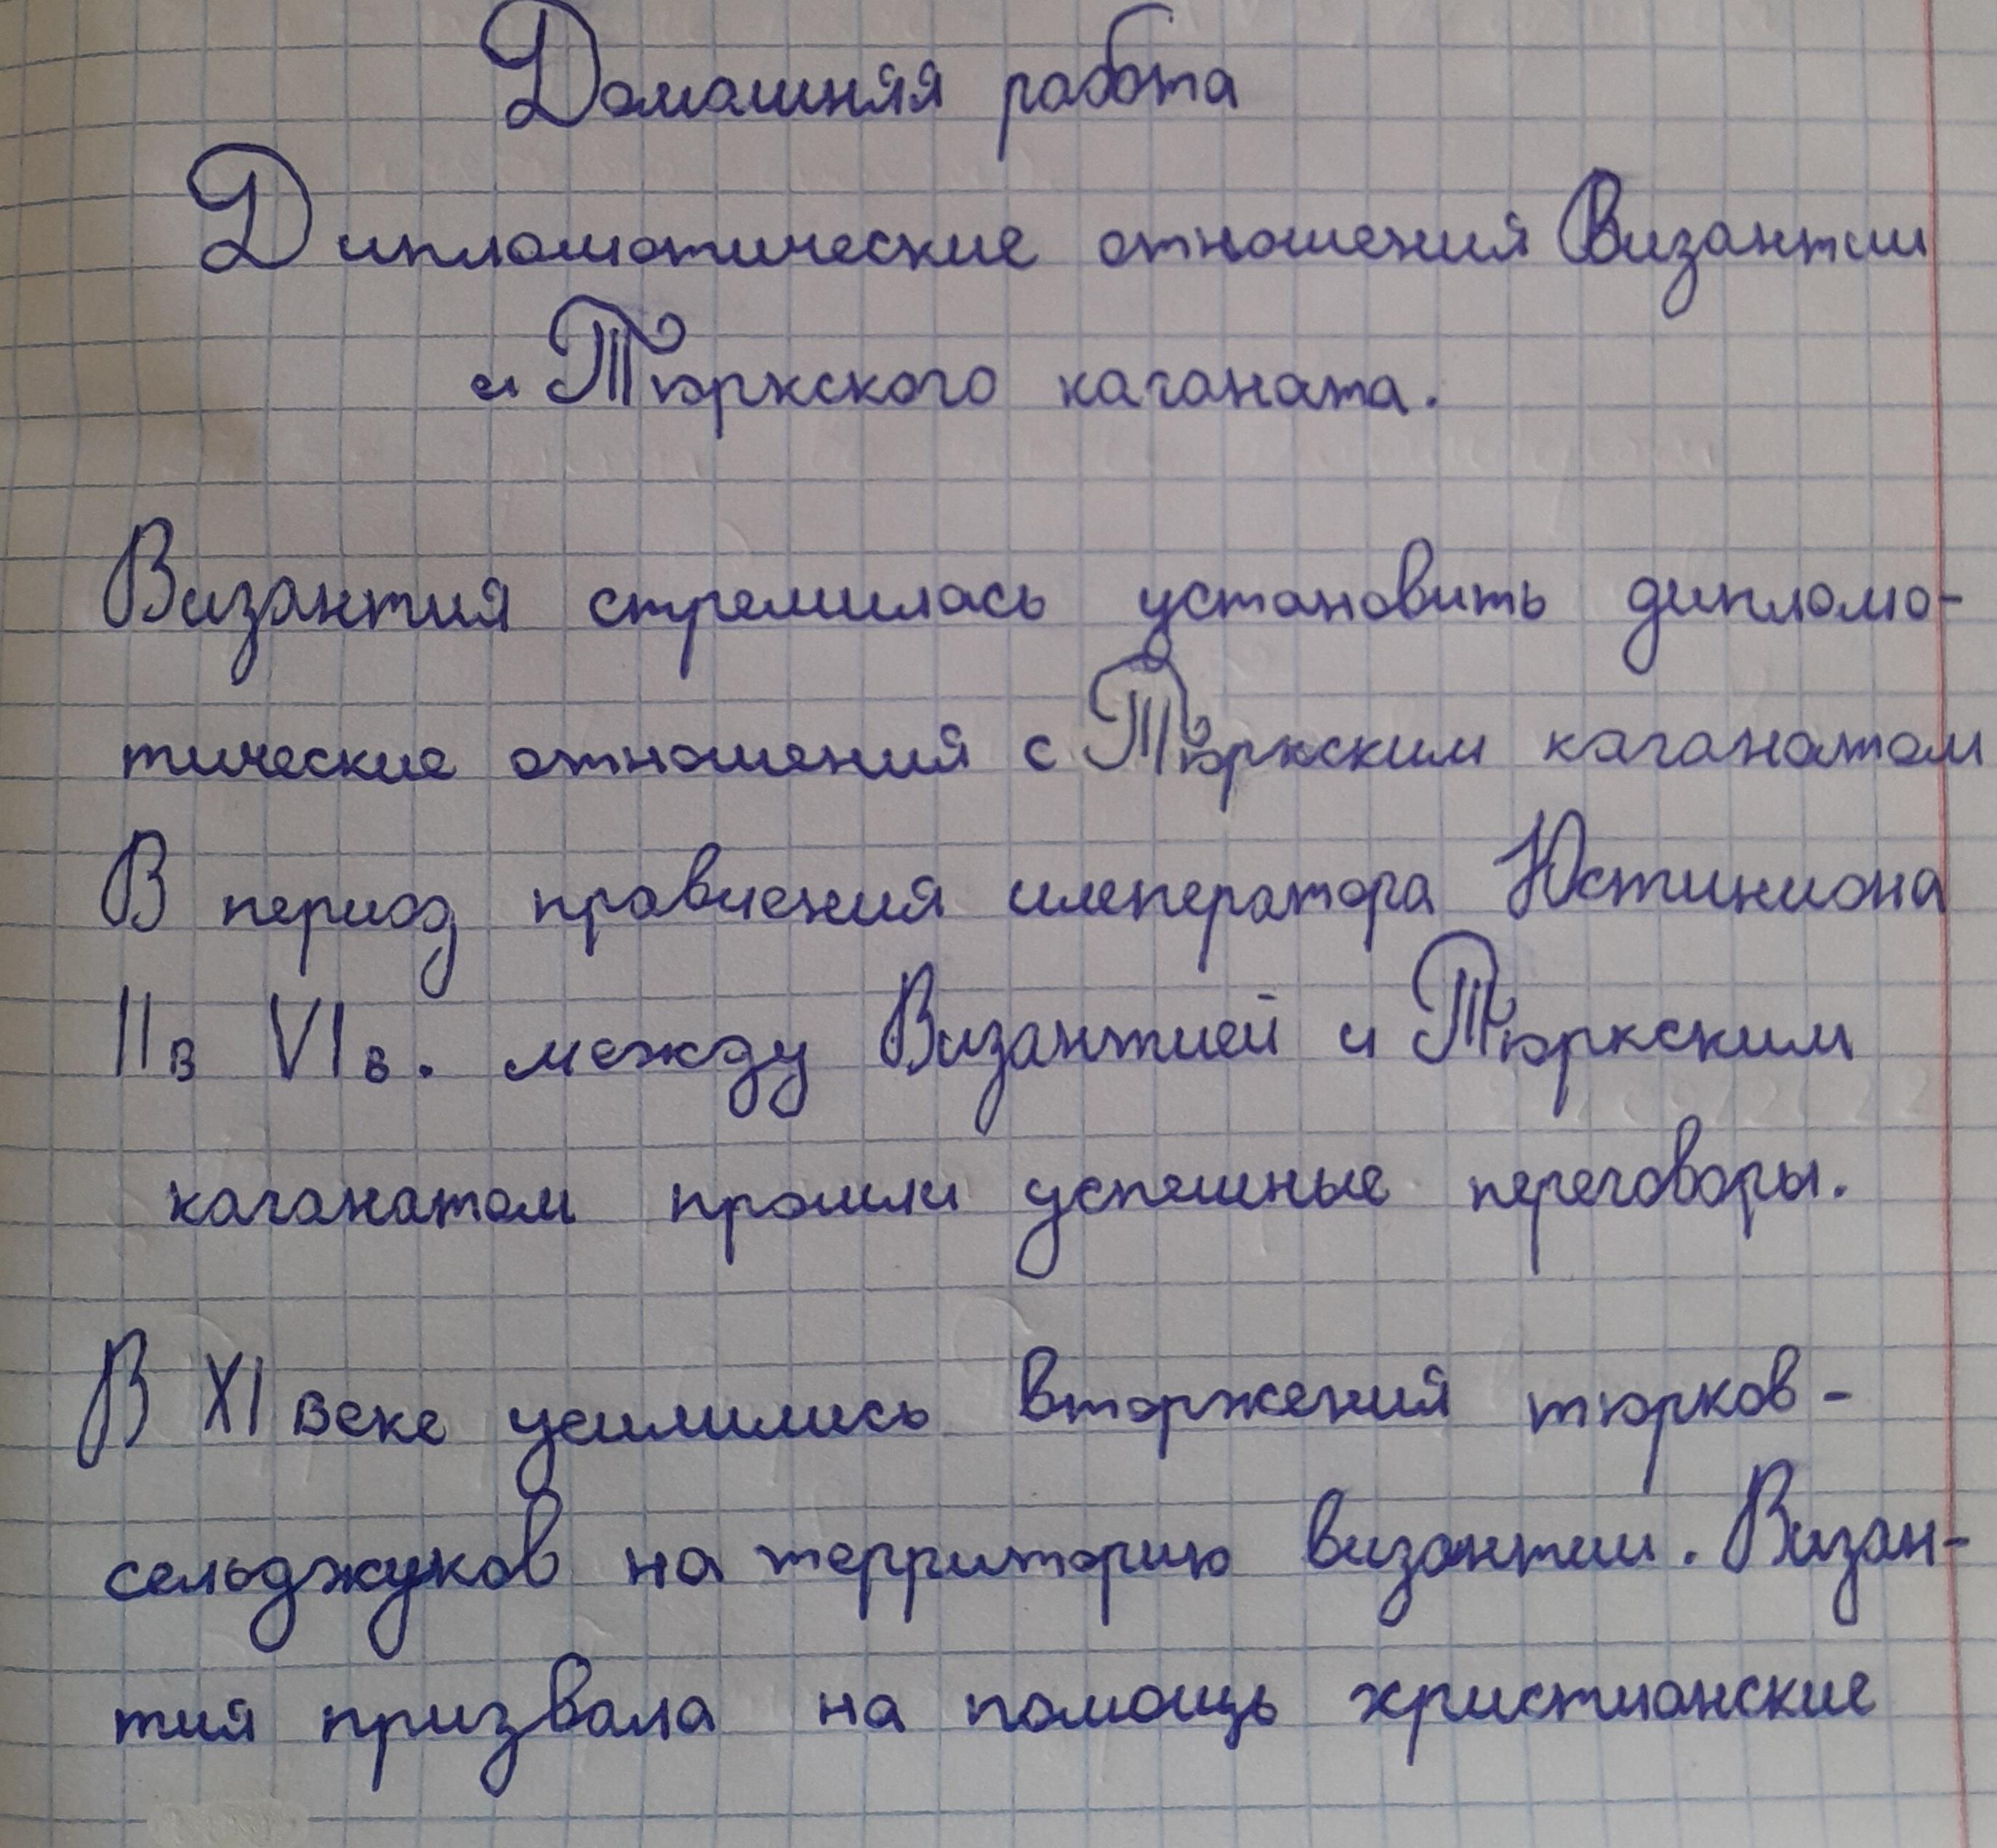 Домашняя работа
Дипломатические отношения Византии
и Тюркского каганата.
Византия стремилась установить диплома-
тические отношения с Тюркским каганатом
В период правления императора Юстиниана
II в VI в. между Византией и Тюркским
каганатом прошли успешные переговоры.
В XI веке усилились вторжения тюрков-
сельджуков на территорию византии. Визан-
тия призвала на помощь христианские